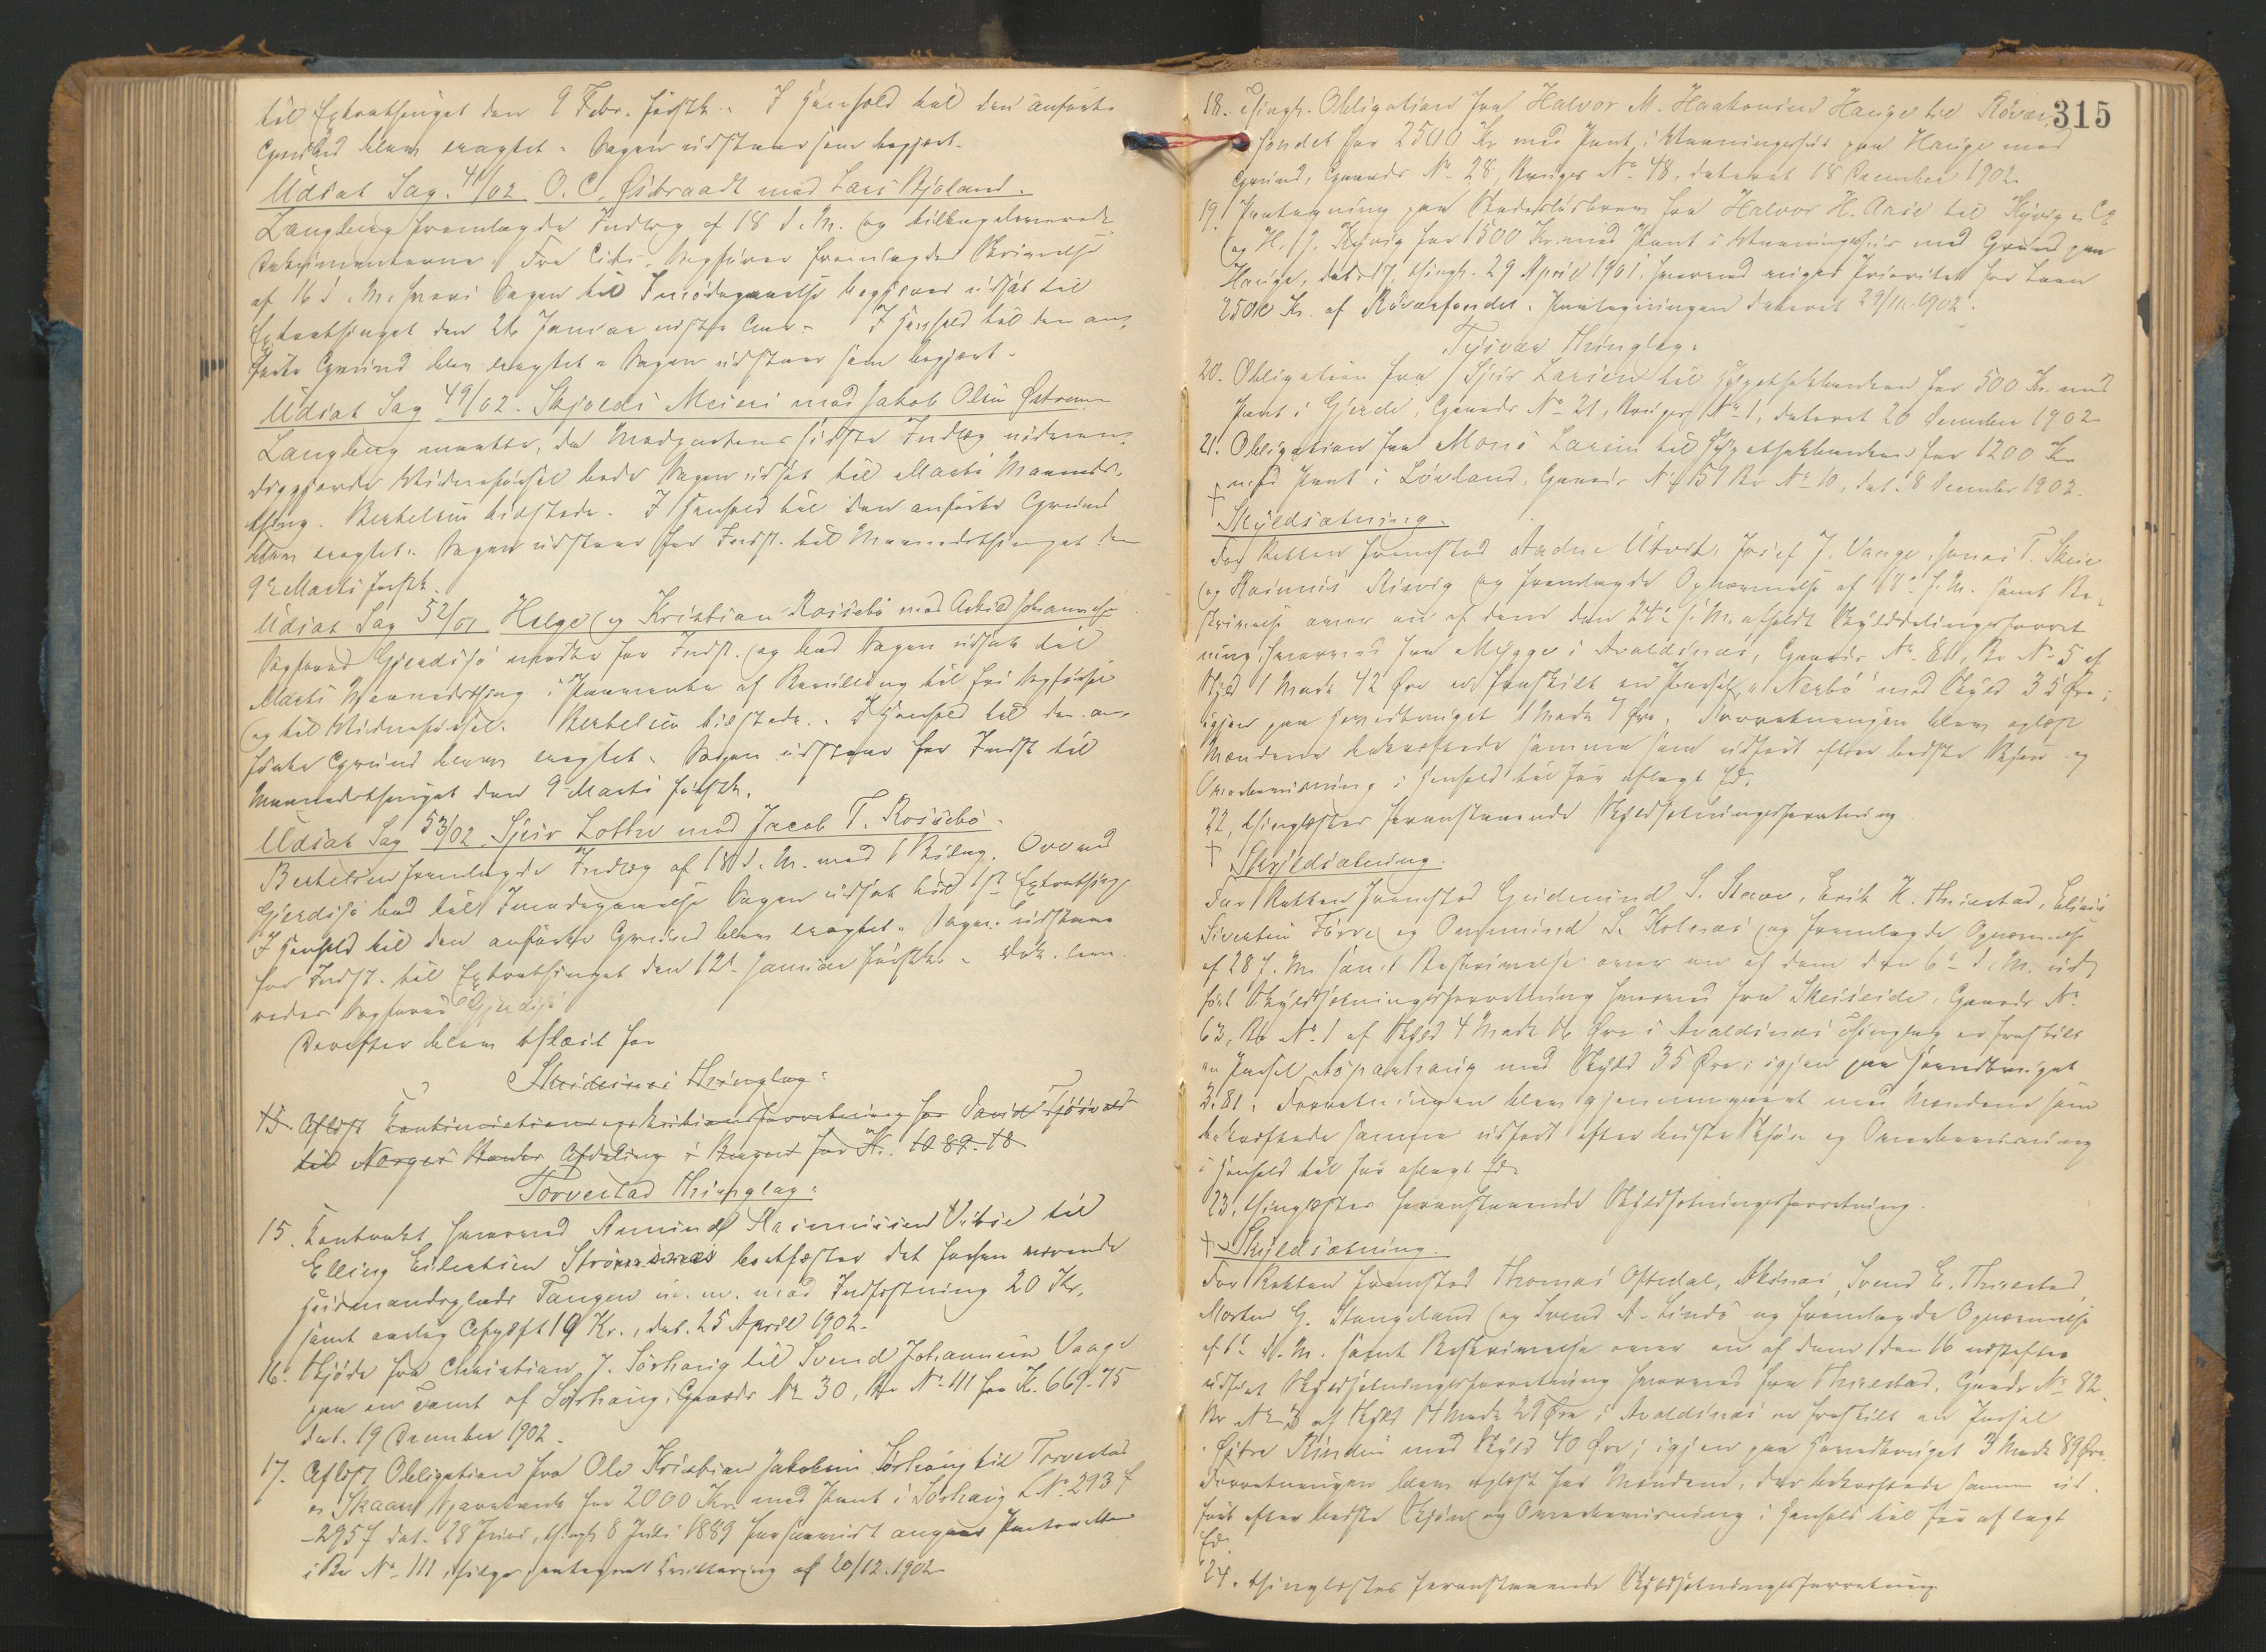 til Extrathinget den 9 Febr. førstk. I Henhold til den anførte
Grund blev eragtet: Sagen udstaar som begjært.
Udsat Sag 41/02 O. C. Østraadt mod Lars Bjoland.
Langberg fremlagde Indlæg af 18 d. M. og tilbageleverede
Dokumenterne. Fra Cit. Sagfører fremlagdes Skrivelse
af 16 d. M. hvori Sagen til Imødegaaelse begjæres udsat til
Extrathinget den 26 Januar næste Aar. I Henhold til den an-
førte Grund blev eragtet: Sagen udstaar som begjært.
Udsat Sag 49/02. Skjolds Meieri mod Jakob Olsen
Langberg maatte, da Modpartens sidste Indlæg nødven-
diggjorde Vidneførsel bede Sagen udsat til Marts Maaneds-
thing. Bertelsen tilstede. I Henhold til den anførte Grund
blev eragtet: Sagen udstaar for Indst. til Maanedsthinget den
9de Marts førstk.
Udsat Sag 52/01 Helge og Kristian Rossebø mod Askild Johannesen
Sagfører Gjerdsjø mødte for Indst. og bad Sagen udsat til
Marts Maanedsthing i Paavente af Bevilling til fri Sagførsel
og til Vidneførsel. Bertelsen tilstede. I Henhold til den an-
førte Grund blev eragtet: Sagen udstaar for Indst til
Maanedsthinget den 9 Marts førstk.
Udsat Sag 53/02. Sjur Lothe mod Jacob T. Rossebø.
Bertelsen fremlagde Indlæg af 18 d. M. med 1 Bilag. Ovrmd
Gjerdsjø bad til Imødegaaelse Sagen udsat til 1ste Extrathing.
I Henhold til den anførte Grund blev eragtet: Sagen udstaar
for Indst. til Extrathinget den 12te Januar førstk. Dok. leve-
redes Sagfører Gjerdsjø
Derefter blev aflæst for
Skudesnes Thinglag:
15. Aflyst Kontinuations forretning for David
til Norges Banks Afdeling i Bergen for Kr. 10 89.10
Torvestad Thinglag:
15. Kontrakt hvorved Amund Rasmussen Vibse til
Elling Eilertsen Strømsnes bortfæster det forhen værende
Husmandsplads Tangen m. m. mod Indfæstning 20 Kr.
samt aarlig Afgift 19 Kr., dat. 25 April 1902.
16. Skjøde fra Christian J. Sørhaug til Svend Johannesen Vaage
paa en Tomt af Sørhaug, Gaards No 30, Br No 111 for Kr. 669.75
dat. 19 December 1902.
17. Aflyst Obligation fra Ole Kristian Jakobsen Sørhaug til Torvestad
og Skaare Sparebank for 2000 Kr. med Pant i Sørhaug L No 293 f
-295 f dat. 28 Juni, thingl. 8 Juli 1889 forsaavidt angaar Panteretten
i Br No 111 ifølge paategnet Kvittering af 20/12.1902
315
18. Thingl. Obligation fra Halvor M. Haakonsen Hauge til Røvær-
fondet for 2500 Kr med Pant i Vaaningshus paa Hauge med
Grund, Gaards No 28, Bruges No 48, dateret 18 December 1902.
19. Paategning paa Skadesløsbrev fra Halvor H. Aase til Kyvig & Co
og H. J. Kyvig for 1500 Kr. med Pant i Vaaningshus med Grund paa
Hauge, dat. 17, thingl. 29 April 1901, hvorved viges Prioritet for Laan
2500 Kr. af Røværfondet. Paategningen dateret 29/11-1902.
Tysvær Thinglag:
20. Obligation fra Sjur Larsen til Hypothekbanken for 500 Kr. med
Pant i Gjerde, Gaards No 21, Bruges No 1, dateret 20 December 1902
21. Obligation fra Mons Larsen til Hypothekbanken for 1200 Kr
med Pant i Løvland, Gaards No 151 Br No 10, dat. 8 December 1902.
† Skyldsætning.
For Retten fremstod Aadne Utvik, Josef J. Vaage, Jonas T. Skeie
og Rasmus Risvig og fremlagde Opnævnelse af 18de f. M. samt Be-
skrivelse over en af dem den 24de f. M. afholdt Skylddelingsforret
ning, hvorved fra Mygge i Avaldsnes, Gaards No 80, Br No 5 af
Skyld 1 Mark 42 Øre er fraskilt en Parsel "Nerbø" med Skyld 35 Øre;
igjen paa Hovedbruget 1 Mark 7 Øre. Forretningen blev oplæst
Mændene bekræftede samme som udført efter bedste Skjøn og
Overbevisning i Henhold til før aflagt Ed.
22, thinglæstes foranstaaende Skyldsætningsforretning
† Skyldsætning.
For Retten fremstod Gudmund S. Stave, Erik K. Thuestad, Elias
Sivertsen Førre og Ommund L. Kolnes og fremlagde Opnævnelse
af 28 f. M. samt Beskrivelse over en af dem den 6te d. M. ud-
ført Skyldsætningsforretning hvorved fra Skeiseide, Gaards No
63, Br No 1 af Skyld 4 Mark 16 Øre i Avaldsnes Thinglag er fraskilt
en Parsel Asparhaug med Skyld 35 Øre; igjen paa Hovedbruget
3.81. Forretningen blev gjennemgaaet med Mændene som
bekræftede samme udført efter bedste Skjøn og Overbevisning
i Henhold til før aflagt Ed.
23, thinglæstes foranstaaende Skyldsætningsforretning.
† Skyldsætning.
For Retten fremstod Thomas Oftedal, Aksnes, Svend E. Thuestad,
Morten G. Stangeland og Svend A. Lindø og fremlagde Opnævnelse
af 1ste d. M. samt Beskrivelse over en af dem den 16 næstefter
udført Skyldsætningsforretning hvorved fra Thuestad, Gaards No 82
Br No 3 af Skyld 4 Mark 29 Øre i Avaldsnes er fraskilt en Parsel
Østre Rinden med Skyld 40 Øre; igjen paa Hovedbruget 3 Mark 89 Øre.
Forretningen blev oplæst for Mændene, der bekræftede samme ud-
ført efter bedste Skjøn og Overbevisning i Henhold til før aflagt
Ed.
24. thinglæstes foranstaaende Skyldsætningsforretning